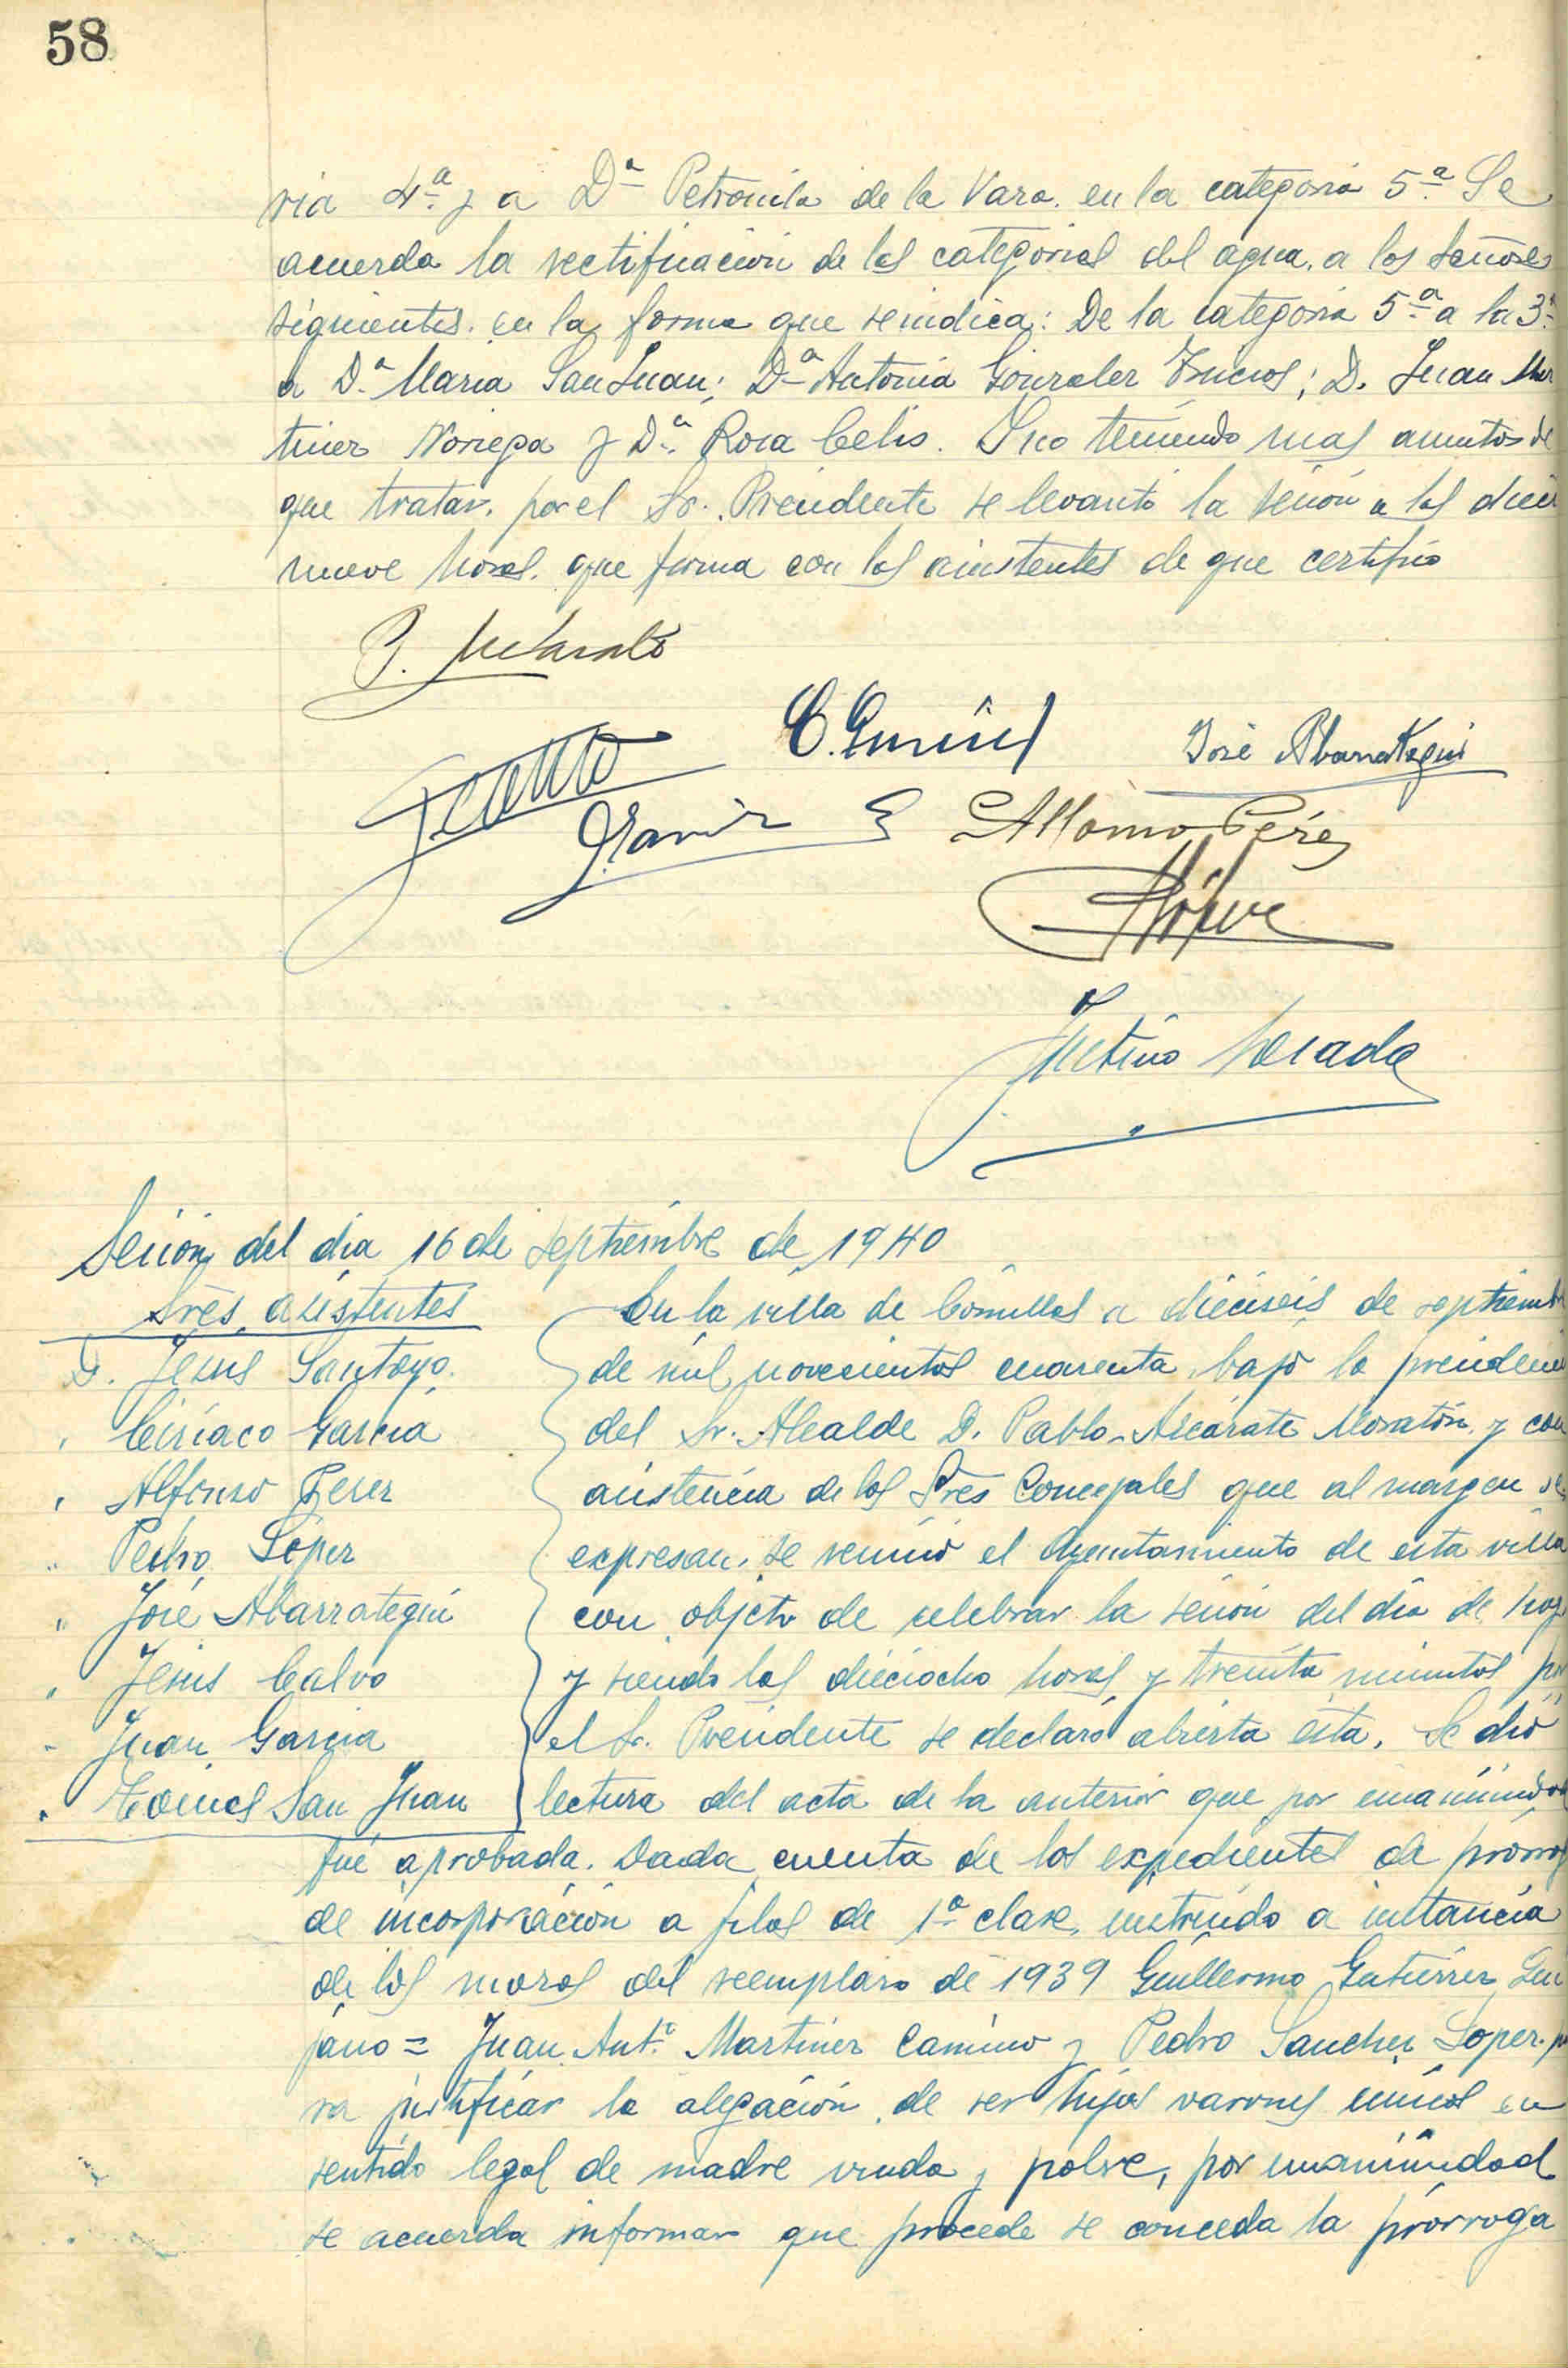 58
ria 4ª y a Dª Petronila de la Vara. en la categoria 5ª Se
acuerda la rectificación de las categorias del agua, a los señores
siguientes. en la forma que se indica: De la categoria 5ª a la 3ª
a D.ª Maria San Juan; Dª Antonia Gonzalez; D. Juan Mar
tinez Noriega y D.ª Rosa Celis. Y no teniendo mas asuntos de
que tratar, por el Sr. Presidente se levantó la sesión a las dieci
nueve horas. que firma con los asistentes de que certifico
P.
José Abarrategui
Alfonso Pérez
Sesión del dia 16 de septiembre de 1940
Sres. asistentes
D. Jesus Santoyo.
" Ciriaco Garcia
" Alfonso Perez
" Pedro López
" José Abarrategui
" Jesús Calvo
" Juan Garcia
" San Juan
En la villa de Comillas a dieciseis de septiembre
de mil novecientos cuarenta, bajo la presidencia
del Sr. Alcalde D. Pablo Azcárate Moratón y con
asistencia de los Sres Concejales que al margen se
expresan, se reunió el Ayuntamiento de esta villa
con objeto de celebrar la sesión del dia de hoy
y siendo las dieciocho horas y treinta minutos por
el Sr. Presidente se declaró abierta ésta. Se dió
lectura del acta de la anterior que por unanimidad
fué aprobada. Dada cuenta de los expedientes de prórroga
de incorporación a filas de 1ª clase, instruido a instancia
de los mozos del reemplazo de 1939 Guillermo Gutiérrez
jano = Juan Ant.º Martinez Camino y Pedro Sanchez Lopez. pa
ra justificar la alegación de ser hijos varones únicos en
sentido legal de madre viuda y pobre, por unanimidad
se acuerda informar que procede se conceda la prórroga